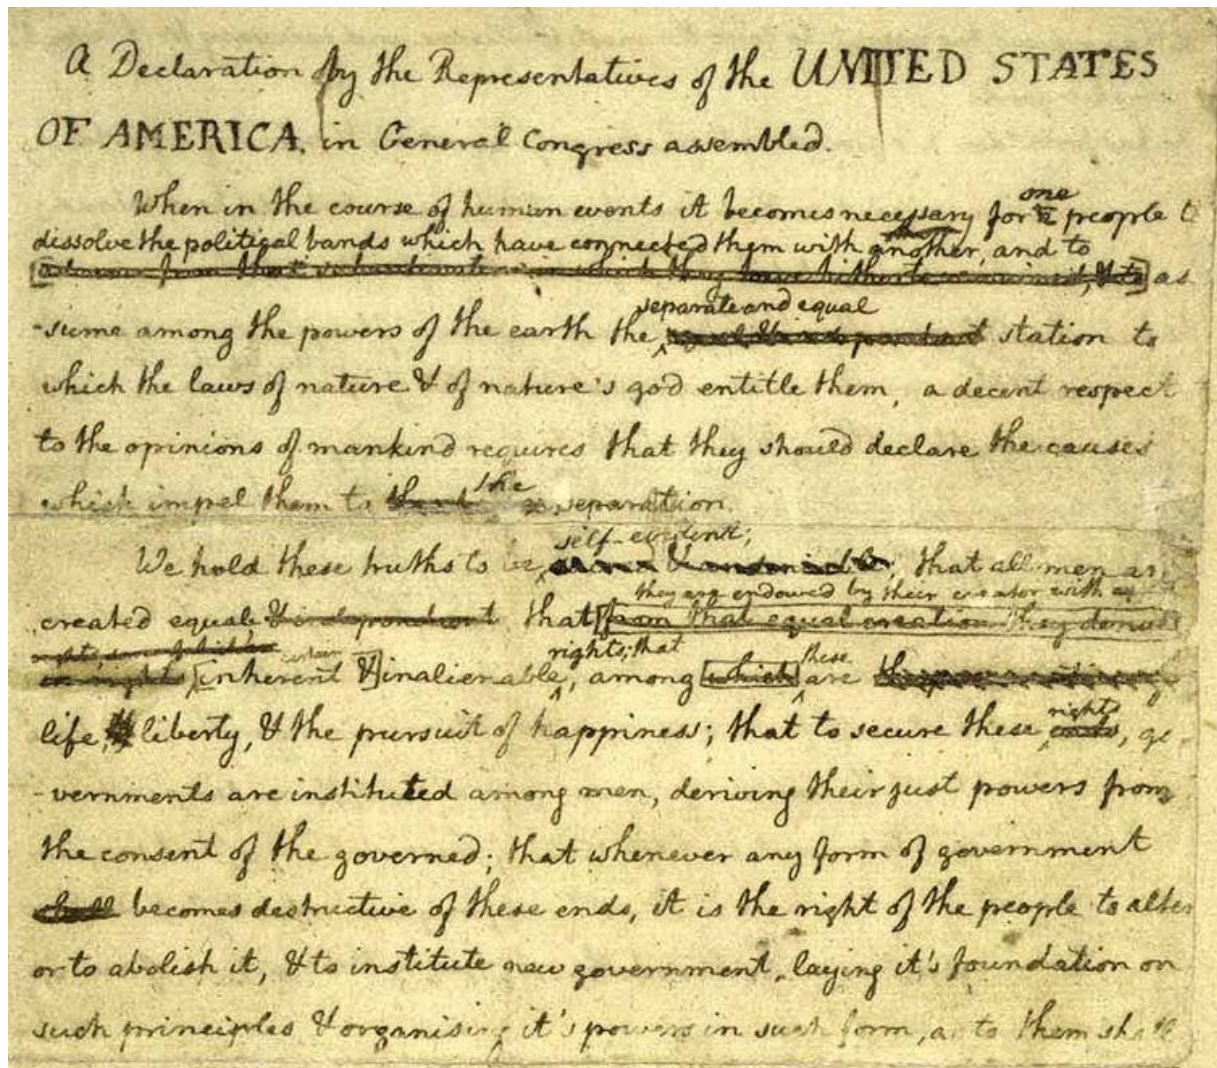 A Declaration by the Representatives of the UNITED STATES
OF AMERICA, in General Congress assembled.
one
When in the course of human events it becomes necessary for people t
dissolve the political bands which have connected them with another, and to
as
separate and equal
-sume among the powers of the earth the station to
which the laws of nature & of nature's god entitle them, a decent respect
to the opinions of mankind requires that they should declare the causes
the
which impel them to separation.
self-evident;
We hold these truths to be that all men ar
they are endowed by their creator with
created equal & independent that from that equal creation they
certain
rights; that
these
inherent & inalienable, among which are
rights
life, liberty, & the pursuit of happiness; that to secure these ends, go
-vernments are instituted among men, deriving their just powers from
the consent of the governed; that whenever any form of government
shall becomes destructive of these ends, it is the right of the people to alter
or to abolish it, & to institute new government, laying it's foundation on
such principles & organising it's powers in such form, as to them shall